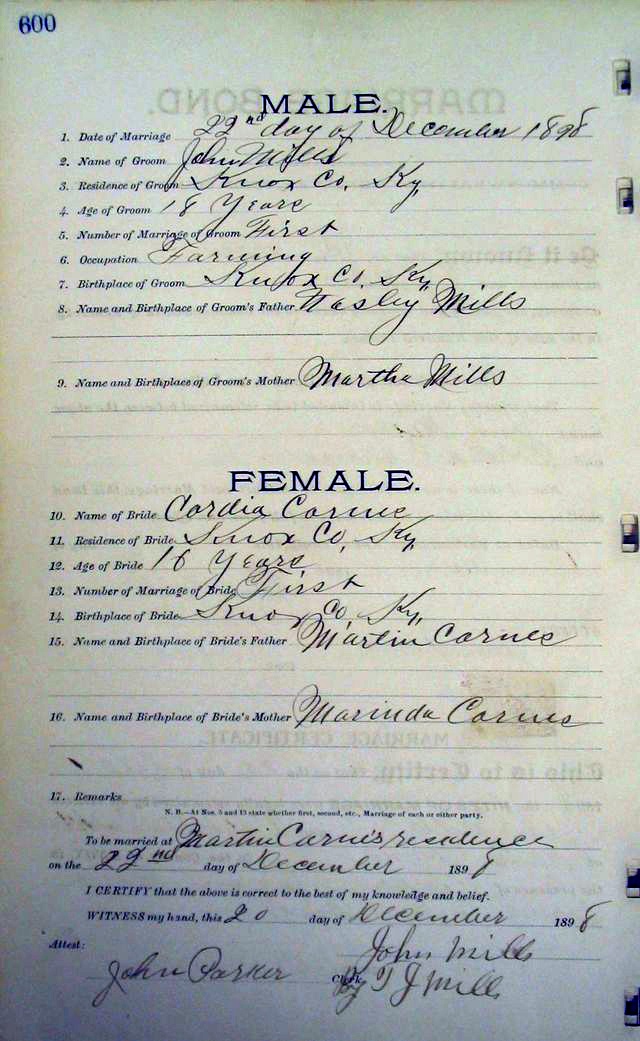 600
MALE.
1. Date of Marriage 22nd day of December 1898
2. Name of Groom John Mills
3. Residence of Groom Knox Co, Ky,
4. Age of Groom 18 Years
5. Number of Marriage of Groom First
6. Occupation Farming
7. Birthplace of Groom Knox Co, Ky,
8. Name and Birthplace of Groom's Father Wesley Mills
9. Name and Birthplace of Groom's Mother Martha Mills
FEMALE.
10. Name of Bride Cordia Carnes
11. Residence of Bride Knox Co, Ky,
12. Age of Bride 16 Years
13. Number of Marriage of Bride First
14. Birthplace of Bride Knox Co, Ky,
15. Name and Birthplace of Bride's Father Martin Carnes
16. Name and Birthplace of Bride's Mother Marinda Carnes
17. Remarks
N. B.—At Nos. 5 and 13 state whether first, second, etc., Marriage of each or either party.
To be married at Martin Carnes residence
on the 22nd day of December 1898
I CERTIFY that the above is correct to the best of my knowledge and belief.
WITNESS my hand, this 20 day of December 1898
Attest: John Mills
John Parker Clerk By T J Mills